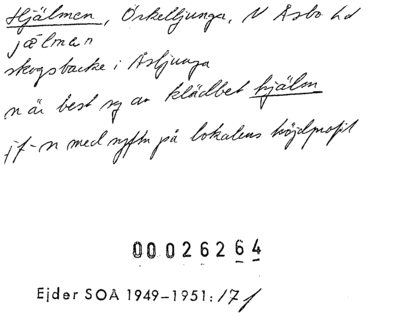 Hjälmen, Örkelljunga, N Åsbo hd
jælmən
skogsbacke i Åsljunga
n är best sg av klädbet hjälm
jf-n med syftn på lokalens höjdprofil
00026264
Ejder SOA 1949-1951:171